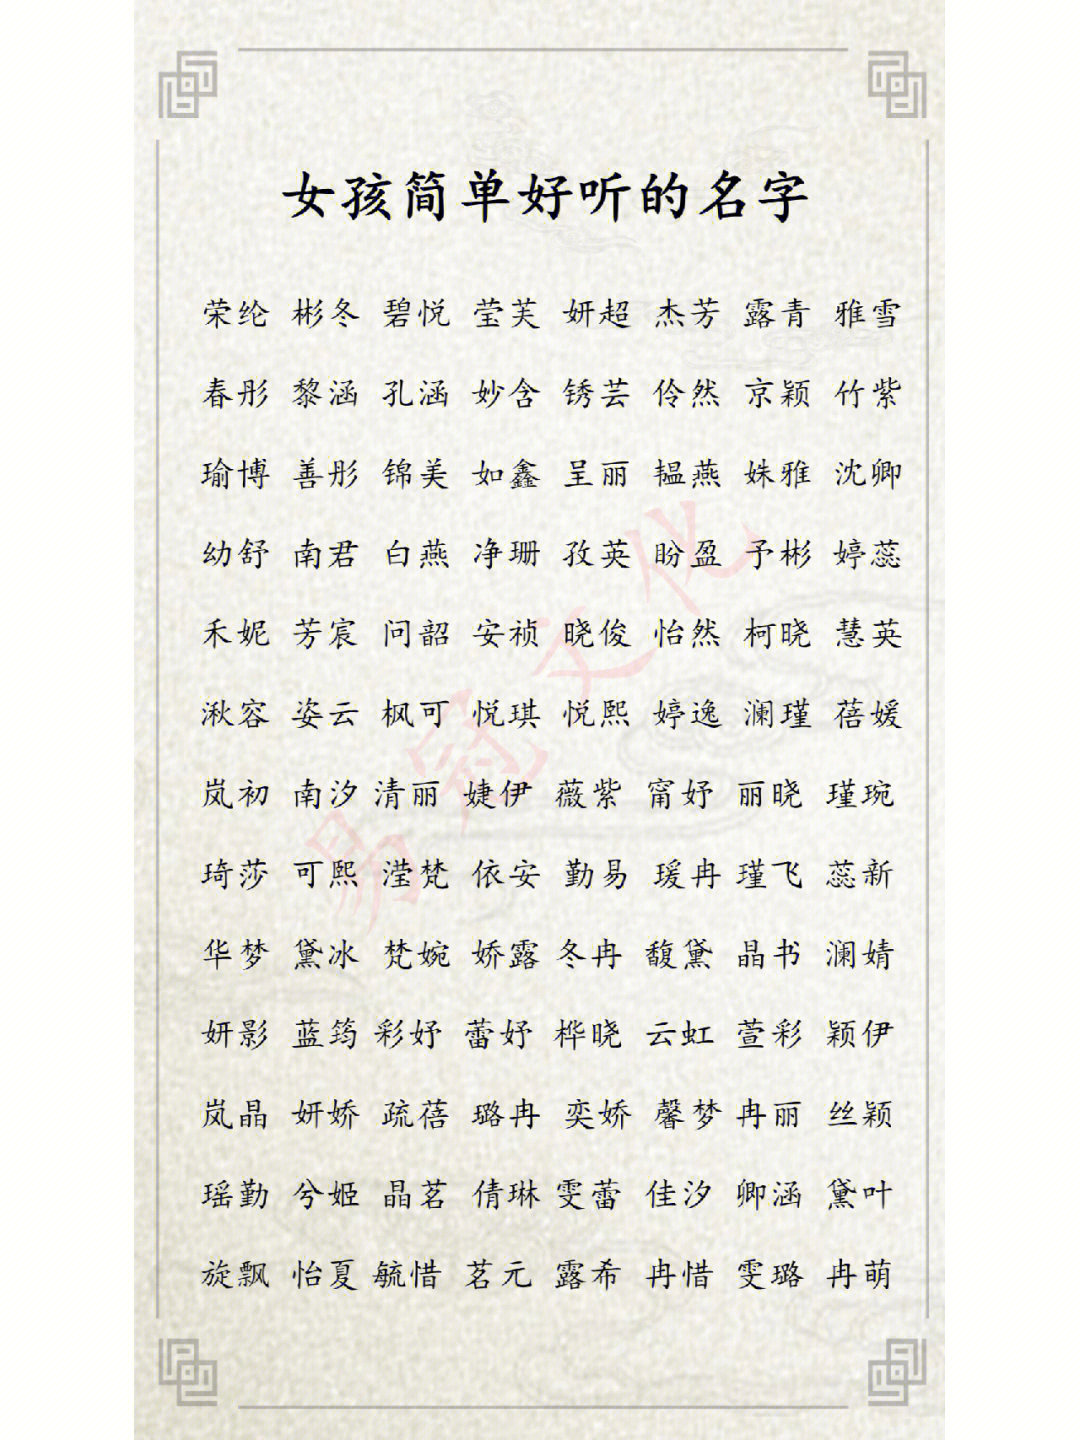 女孩简单好听的名字
荣纶 彬冬 碧悦 莹芙 妍超 杰芳 露青 雅雪
春彤 黎涵 孔涵 妙含 锈芸 伶然 京颖 竹紫
瑜博 善彤 锦美 如鑫 呈丽 韫燕 姝雅 沈卿
幼舒 南君 白燕 净珊 孜英 盼盈 予彬 婷蕊
禾妮 芳宸 问韶 安祯 晓俊 怡然 柯晓 慧英
湫容 姿云 枫可 悦琪 悦熙 婷逸 澜瑾 蓓媛
岚初 南汐 清丽 婕伊 薇紫 甯妤 丽晓 瑾琬
琦莎 可熙 滢梵 依安 勤易 瑗冉 瑾飞 蕊新
华梦 黛冰 梵婉 娇露 冬冉 馥黛 晶书 澜婧
妍影 蓝筠 彩妤 蕾妤 桦晓 云虹 萱彩 颖伊
岚晶 妍娇 疏蓓 璐冉 奕娇 馨梦 冉丽 丝颖
瑶勤 兮姬 晶茗 倩琳 雯蕾 佳汐 卿涵 黛叶
旋飘 怡夏 毓惜 茗元 露希 冉惜 雯璐 冉萌
易冠文化